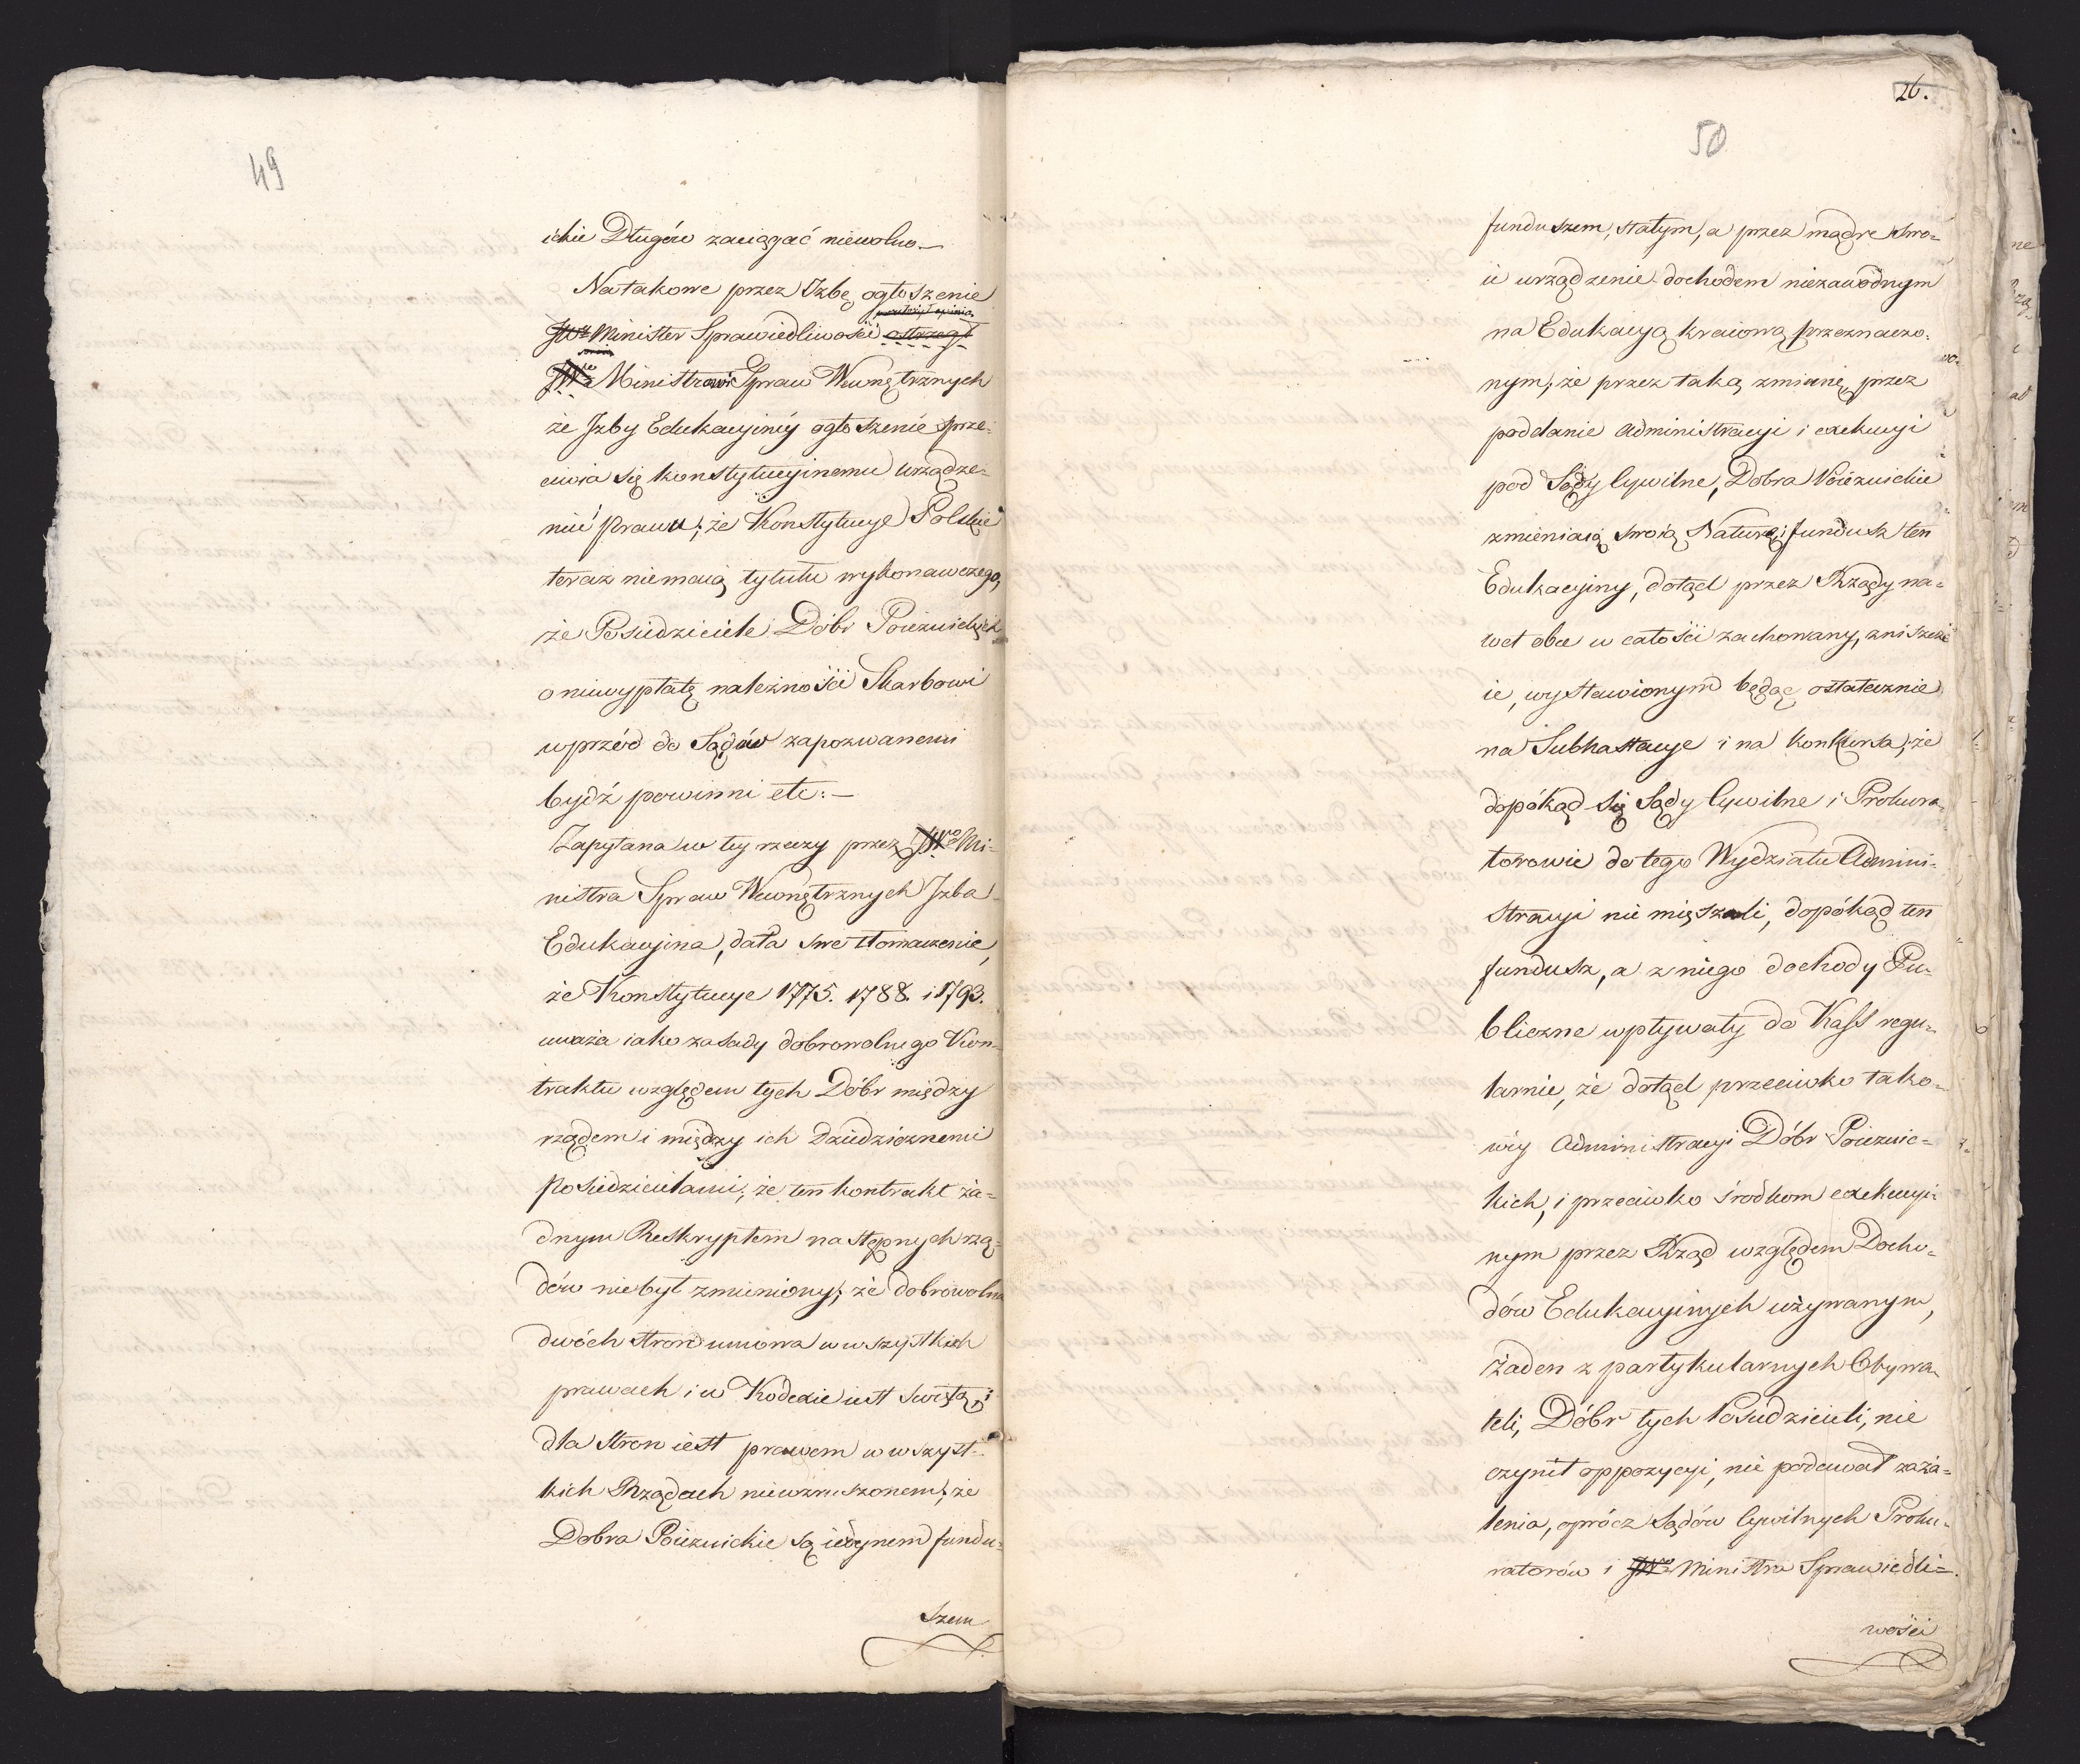 49
ickie Długów zaciągać niewolno.—
Natakowe przez Izbę ogłoszenie
powtórzył opinią
JWż Minister Sprawiedliwości ostrzegł
JWo Ministrowi Spraw Wewnętrznych
że Izby Edukacyiniéy ogłoszenie sprze-
ciwia się konstytucyinemu urządze-
niu prawu; że Konstytucye Polskie
teraz niemaią tytułu wykonawczego,
że Posiedziciele Dóbr Poiezuickich
o niewypłatę należności Skarbowi
wprzód do Sądów zapozwanemi
bydź powinni etc:—
Zapytana w tey rzeczy przez JWo Mi-
nistra Spraw Wewnętrznych Izba
Edukacyina, dała swe tłomaczenie,
że Konstytucye 1775. 1788. i 1793.
uważa iako zasady dobrowolnego Kon-
traktu względem tych Dóbr między
rządem i między ich Dziedzicznemi
Posiedzicielami; że ten kontrakt ża-
dnym Reskryptem następnych rzą-
dów niebył zmieniony; że dobrowolna
dwóch stron umowa w wszystkich
prawach i w Kodexie iest świętą, i
dla stron iest prawem w wszyst-
kich Rządach niewzruszonem; że
Dobra Poiezuickie są iedynem fundu-
szem
26.
50
funduszem, stałym, a przez mądre swo-
ie urządzenie dochodem niezawodnym
na Edukacyą kraiową przeznaczo-
nym; że przez taką zmianę, przez
poddanie administracyi i exekucyi
pod Sądy Cywilne, Dobra Poiezuickie
zmieniaią swoią Naturę; i fundusz ten
Edukacyiny, dotąd przez Rządy na-
wet obce w całości zachowany, zniszcze-
ie, wystawionym będąc ostatecznie
na Subhastacye i na konkursa; że
dopókąd się Sądy Cywilne i Prokura-
torowie do tego Wydziału Admini-
stracyi nie mięszali, dopókąd ten
fundusz, a z niego dochody Pu-
bliczne wpływały do Kass regu-
larnie, że dotąd przeciwko tako-
wéy Administracyi Dóbr Poiezuic-
kich, i przeciwko środkom exekucyi-
nym przez Rząd względem Docho-
dów Edukacyinych używanym,
żaden z partykularnych Obywa-
teli, Dóbr tych Posiedzicieli, nie
czynił oppozycyi, nie podawał zaża-
lenia, oprócz Sądów Cywilnych Proku-
ratorów i JWo Ministra Sprawiedli-
wości